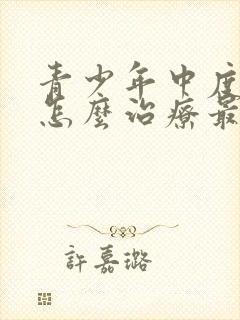 青少年中度
怎麼治療最
許嘉璐